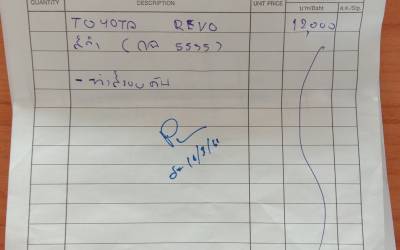 QUANTITY DESCRIPTION UNIT PRICE บาท/Baht ส.ต./Stg.
TOYOTA REVO 12,000
สีดำ (กฉ 5555)
- ทำสีรอบคัน